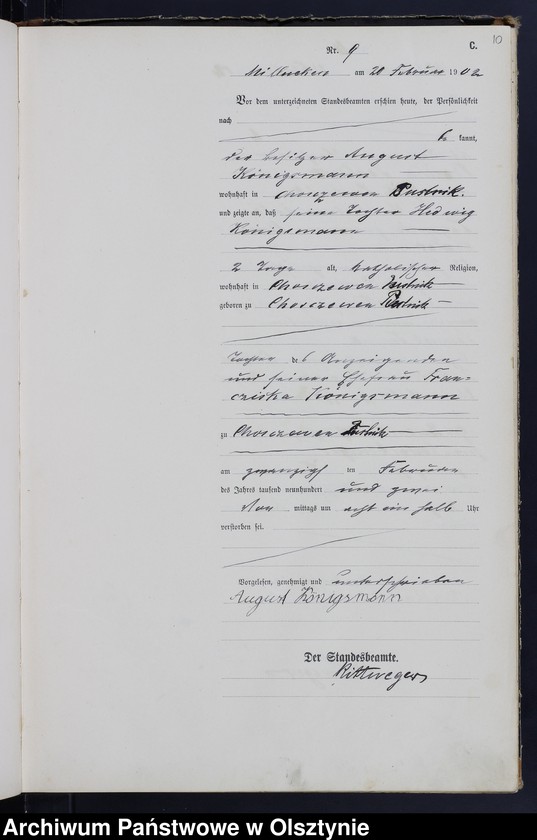 10
C.
Nr. 9
am 20 Februar 1902
Vor dem unterzeichneten Standesbeamten erschien heute, der Persönlichkeit
nach
be kannt,
der Besitzer August
Königsmann
wohnhaft in Choszewen Pustnik.
und zeigte an, daß seine Tochter Hedwig
Königsmann
2 Tage alt, katholischer Religion,
wohnhaft in Choszewen Pustnik
geboren zu Choszewen Pustnik
Tochter des Anzeigenden
und seiner Ehefrau Fran-
cziska Königsmann
zu Choszewen Pustnik
am zwanzigsten Februar
des Jahres tausend neunhundert und zwei
Vor mittags um acht ein halb Uhr
verstorben sei.
Vorgelesen, genehmigt und unterschrieben
August Königsmann
Der Standesbeamte.
Rittweger
Archiwum Państwowe w Olsztynie